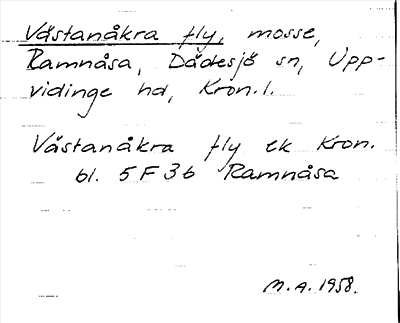 Västanåkra fly, mosse,
Ramnåsa, Dädesjö sn, Upp-
vidinge hd, Kron. l.
Västanåkra fly ek Kron.
bl. 5 F 3 b Ramnåsa
M.A. 1958.